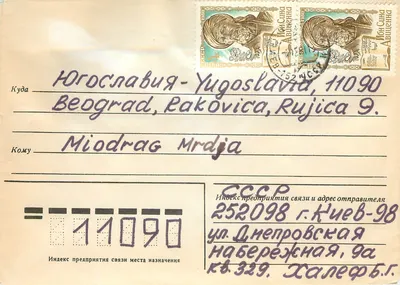 Ибн Сина Авиценна
Ибн Сина Авиценна
Куда Югославия - Yugoslavia, 11090
Beograd, Rakovica, Rujica 9.
Кому Miodrag Mrdja
Индекс предприятия связи и адрес отправителя
СССР
252098 г. Киев-98
ул. Днепровская
набережная, 9а
кв. 329. Халеф Б.Г.
11090
Индекс предприятия связи места назначения